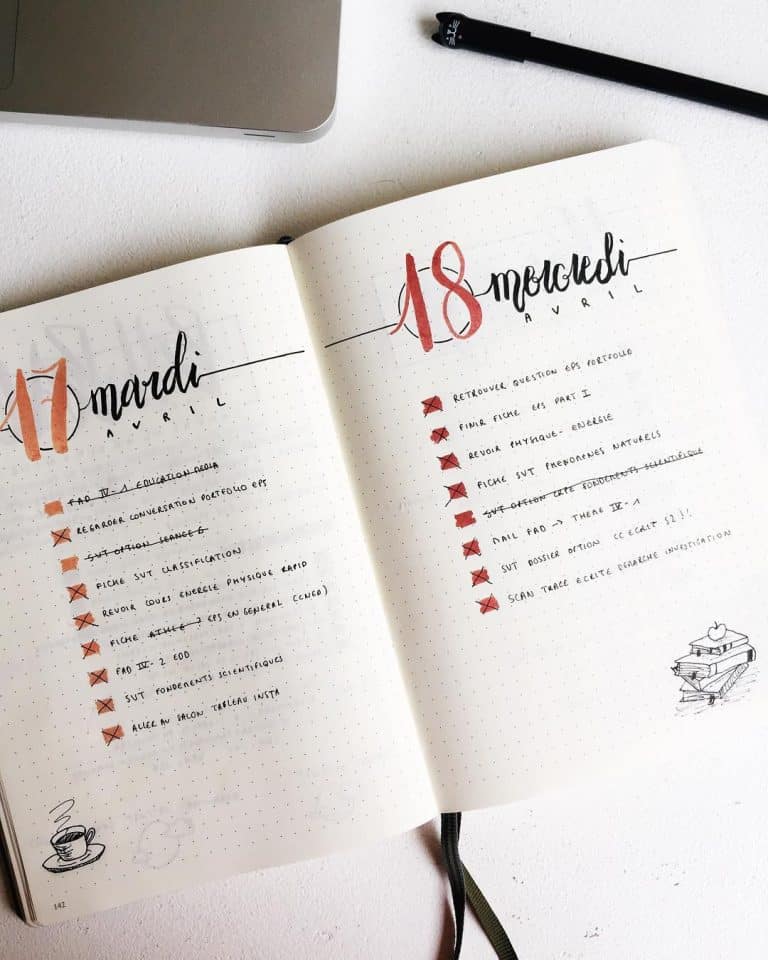 17 mardi
AVRIL
FAD IV-1 EDUCATION MEDIA
REGARDER CONVERSATION PORTFOLIO EPS
SVT OPTION SEANCE 6
FICHE SVT CLASSIFICATION
REVOIR COURS ENERGIE PHYSIQUE RAPID
FICHE ATHLE ? EPS EN GENERAL (CNED)
FAD IV-2 EDD
SVT FONDEMENTS SCIENTIFIQUES
ALLER AU SALON TABLEAU INSTA
142
18 mercredi
AVRIL
RETROUVER QUESTION EPS PORTFOLIO
FINIR FICHE EPS PART I
REVOIR PHYSIQUE- ENERGIE
FICHE SVT PHENOMENES NATURELS
SVT OPTION CRPE FONDEMENTS SCIENTIFIQUE
MAIL FAD → THEME IV-1
SVT DOSSIER OPTION CC ECRIT S2 )!
SCAN TRACE ECRITE DEMARCHE INVESTIGATION